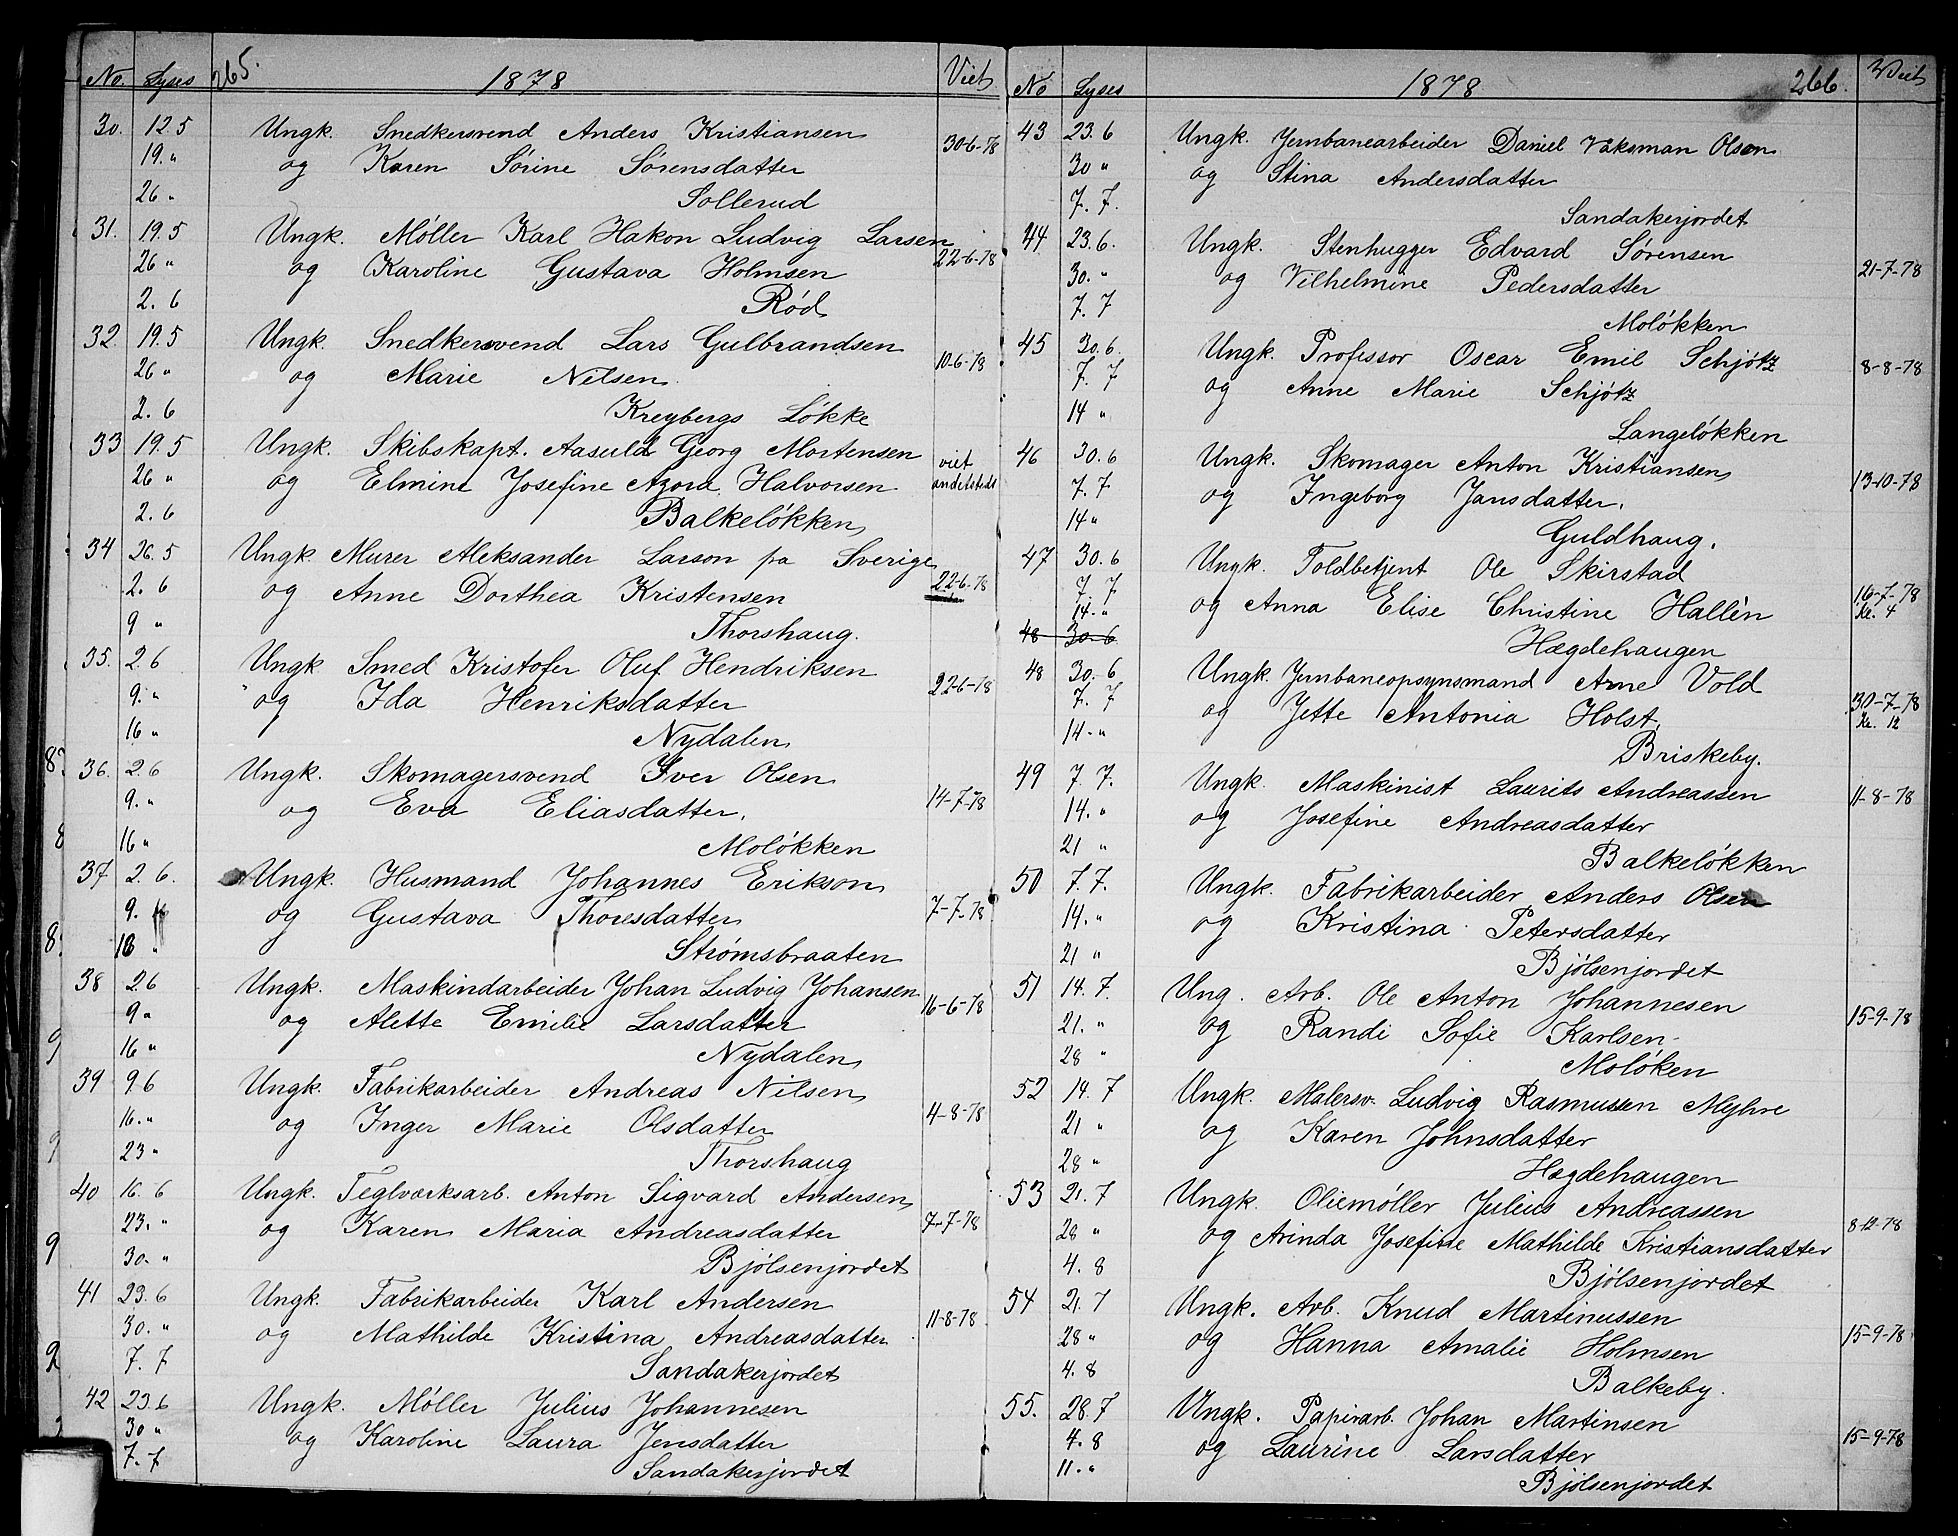 No. Lyses 265. 1878 Viet
30. 12.5 Ungk. Snedkersvend Anders Kristiansen 30-6-78
19. " og Karen Sørine Sørensdatter
26 " Sollerud
31. 19.5 Ungk. Møller Karl Hakon Ludvig Larsen 22-6-78
26 " og Karoline Gustava Holmsen
2. 6 Rød
32 19.5 Ungk. Snedkersvend Lars Gulbrandsen 10-6-78
26 " og Marie Nilsen
2. 6 Kreybergs Løkke
33 19.5 Ungk. Skibskapt. Aasuld Georg Mortensen viet
26 " og Elmine Josefine Azora Halvorsen andetsteds
2. 6 Balkeløkken
34 26.5 Ungk. Murer Aleksander Larson fra Sverige
2. 6 og Anne Dorthea Kristensen 22-6-78
9 " Thorshaug.
35. 2.6 Ungk Smed Kristofer Oluf Hendriksen 22-6-78
9. " og Ida Henriksdatter
16 " Nydalen
36. 2.6 Ungk. Skomagersvend Iver Olsen 14-7-78
9. " og Eva Eliasdatter.
16 " Moløkken
37 2. 6. Ungk. Husmand Johannes Erikson
9. " og Gustava Thoresdatter 7-7-78
16 " Strømsbraaten
38 2.6 Ungk. Maskindarbeider Johan Ludvig Johansen 16-6-78
9 " og Alette Emilie Larsdatter
16 " Nydalen
39 9.6 Ungk. Fabrikarbeider Andreas Nilsen
16. " og Inger Marie Olsdatter 4-8-78
23 " Thorshaug
40 16. 6 Ungk. Teglværksarb. Anton Sigvard Andersen
23. " og Karen Maria Andreasdatter 7-7-78
30. " Bjølsenjordet
41 23. 6 Ungk. Fabrikarbeider Karl Andersen
30. " og Mathilde Kristina Andreasdatter 11-8-78
7. 7 Sandakerjordet
42 23.6 Ungk. Møller Julius Johannesen
30 " og Karoline Laura Jensdatter
7. 7 Sandakerjordet
No Lyses 1878 266. Viet
43 23. 6 Ungk. Jernbanearbeider Daniel Vaksman Olsen
30 " og Stina Andersdatter
7. 7. Sandakerjordet
44 23. 6. Ungk. Stenhugger Edvard Sørensen 21-7-78
30. " og Vilhelmine Pedersdatter
7. 7 Moløkken
45 30. 6. Ungk. Professor Oscar Emil Schjøtz 8-8-78
7. 7 og Anne Marie Schjøtz
14 " Langeløkken
46 30. 6 Ungk. Skomager Anton Kristiansen
7. 7 og Ingeborg Jansdatter. 13-10-78
14 " Guldhaug.
47 30. 6 Ungk. Toldbetjent Ole Skirstad
7. 7 og Anna Elise Christine Hallén 16-7-78
14. " Kl. 4
48 30. 6 Hægdehaugen
48 30. 6 Ungk. Jernbaneopsynsmand Arne Vold
7. 7 og Jette Antonia Holst. 30-7-78
14. " Briskeby. Kl. 12
49 7. 7. Ungk. Maskinist Laurits Andreassen 11-8-78
14. " og Josefine Andreasdatter
21 " Balkeløkken
50 7. 7. Ungk. Fabrikarbeider Anders Olsen
14. " og Kristina Petersdatter
21 " Bjølsenjordet
51 14. 7. Ung. Arb. Ole Anton Johannesen
21. " og Randi Sofie Karlsen 15-9-78
28 " Moløken
52 14. 7 Ungk. Malersv. Ludvig Rasmussen Myhre
21 " og Karen Johnsdatter
28 " Hægdehaugen
53 21. 7 Ungk. Oliemøller Julius Andreassen
28 " og Arinda Josefine Mathilde Kristiansdatter 8-12-78
4. 8 Bjølsenjordet
54 21. 7 Ungk. Arb. Knud Martinussen
28 " og Hanna Amalie Holmsen 15-9-78
4. 8 Balkeby.
55. 28. 7 Ungk. Papirarb. Johan Martinsen
4. 8 og Laurine Larsdatter 15-9-78
11. " Bjølsenjordet